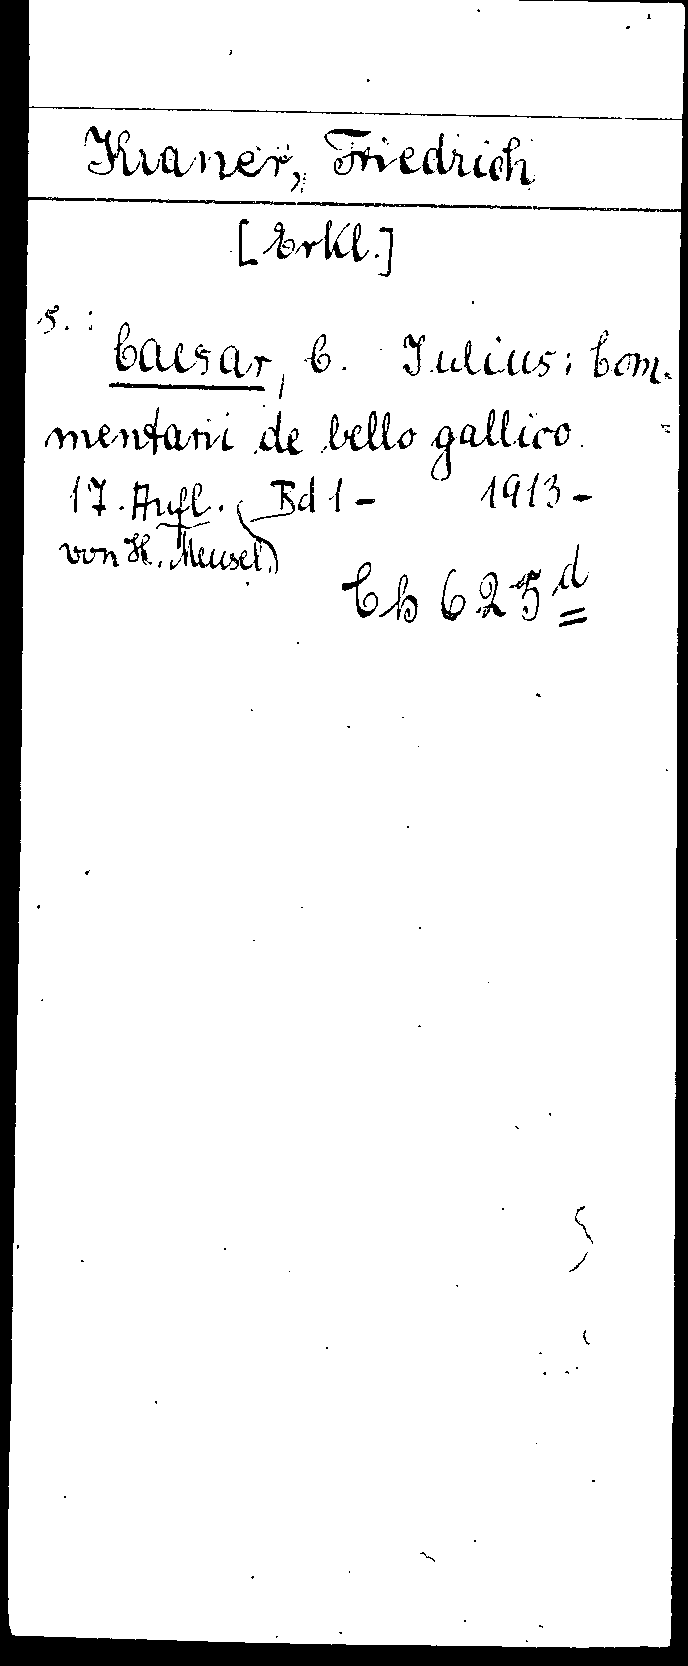 Kraner, Friedrich
[Erkl.]
s.:
Caesar, C. Julius: Com-
mentarii de bello gallico.
17. Aufl. Bd 1- 1913-
von H. Meusel.
Cb 625 d